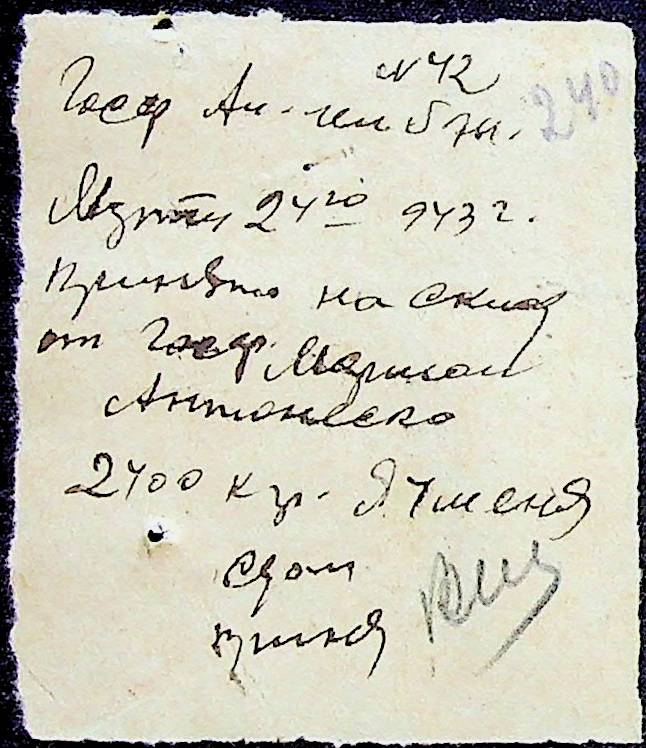 № 42
240
Госф Ан.
Марта 24го 943 г.
Принято на склад
от Госф. Марии
Антонеско
2400 кгр. Ячменя
Сдал
принял